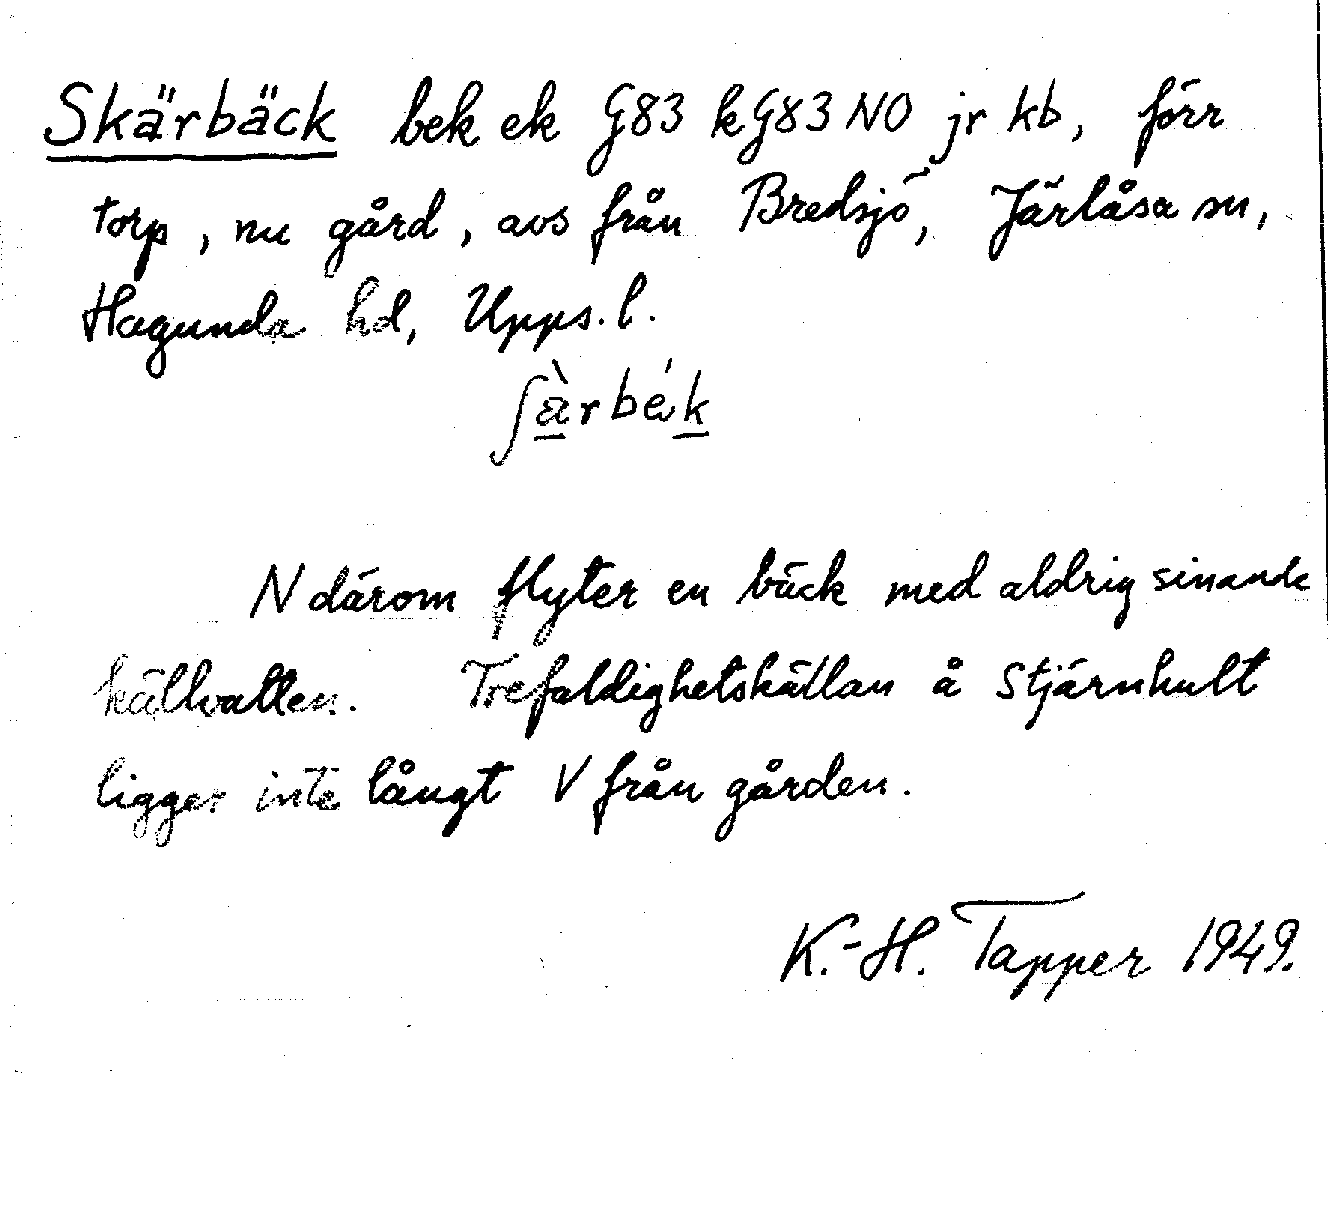 Skärbäck bek ek G83 kG83 NO jr kb, förr
torp, nu gård, avs från Bredsjö, Järlåsa sn,
Hagunda hd, Upps. l.
ʃæ̀rbék
N därom flyter en bäck med aldrig sinande
källvatten. Trefaldighetskällan å Stjärnhult
ligger inte långt V från gården.
K.-H. Tapper 1949.